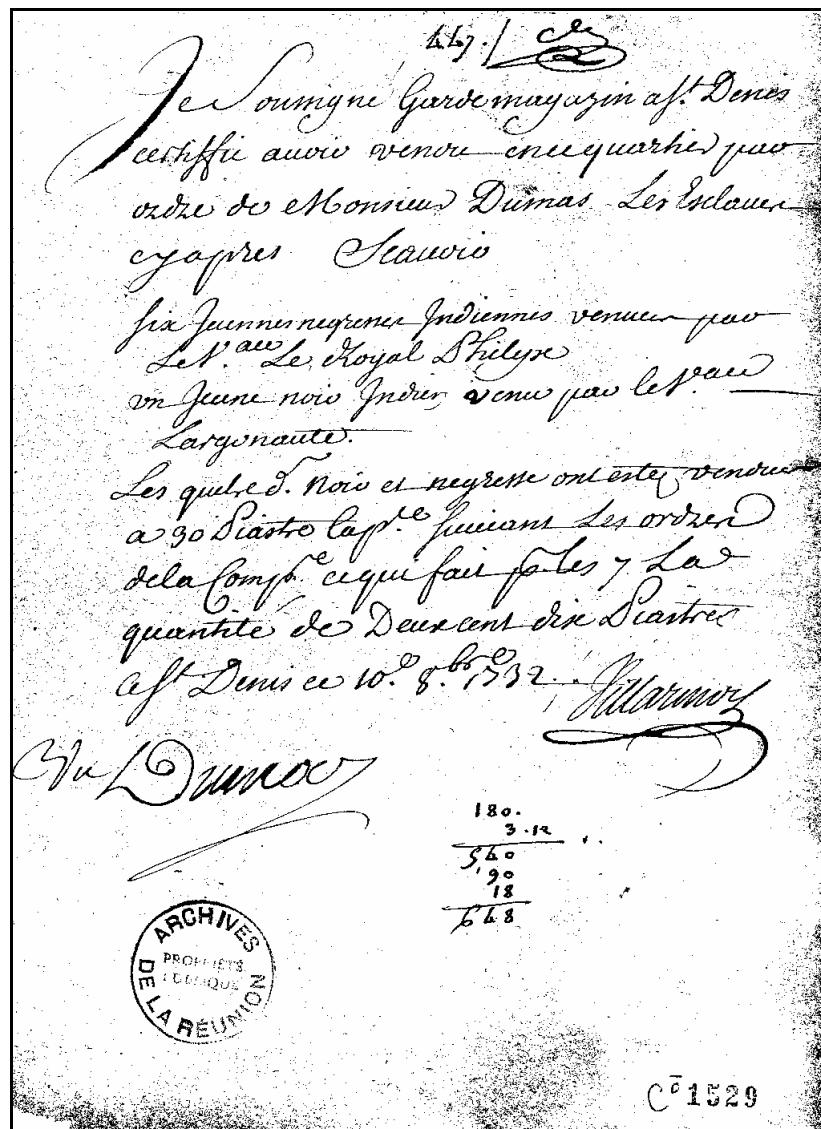 447./.
Je Soussigné Garde magazin a St. Denis
certiffie avoir vendu en ce quartier par
ordre de Monsieur Dumas Les Esclaves
cy apres Scavoir
six Jeunnes negresses Indiennes venues par
Le V.au Le Royal Philipe
un Jeune noir Indien venu par le V.au
Largonaute.
Les quels d. noir et negresse ont estez vendus
a 30 Piastre La pce suivant Les ordres
de la Compe. ce qui fait pr les 7 La
quantité de Deux cent dix Piastres
a St Denis ce 10.e 8.bre 1732.
Villarmoy
Vu Dumas
180.
3.12
540
90
18
648
ARCHIVES
DE LA RÉUNION
PROPRIÉTÉ
PUBLIQUE
C° 1529